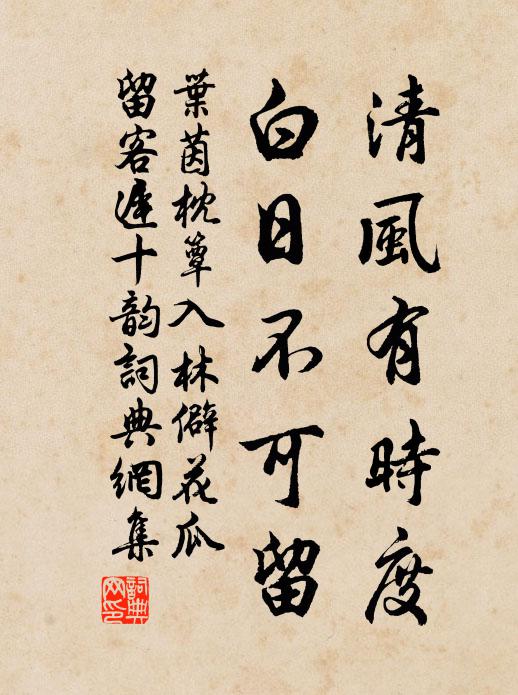 清風有時度
白日不可留
葉茵枕簟入林僻花瓜
留客遲十韵詞典網集
詞典網印